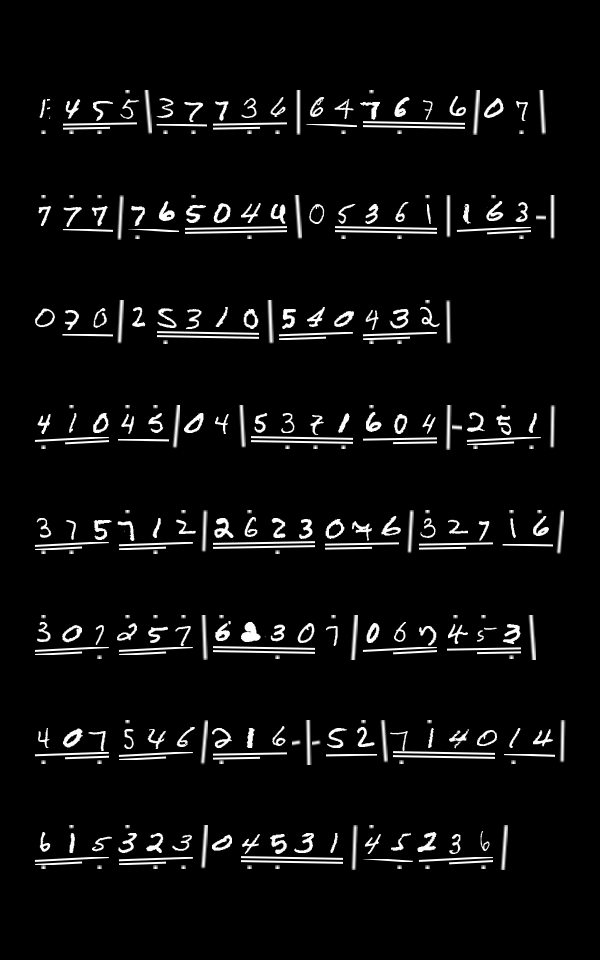 1 4 5 5 | 3 7 7 3 6 | 6 4 7 6 7 6 | 0 7 |
7 7 7 | 7 6 5 0 4 4 | 0 5 3 6 1 | 1 6 3 - |
0 7 0 | 2 5 3 1 0 | 5 4 0 4 3 2 |
4 1 0 4 5 | 0 4 | 5 3 7 1 6 0 4 | - 2 5 1 |
3 7 5 7 1 2 | 2 6 2 3 0 4 6 | 3 2 7 1 6 |
3 0 7 2 5 7 | 6 2 3 0 7 | 0 6 7 4 5 3 |
4 0 7 5 4 6 | 2 1 6 - | - 5 2 | 7 1 4 0 1 4 |
6 1 5 3 2 3 | 0 4 5 3 1 | 4 5 2 3 6 |